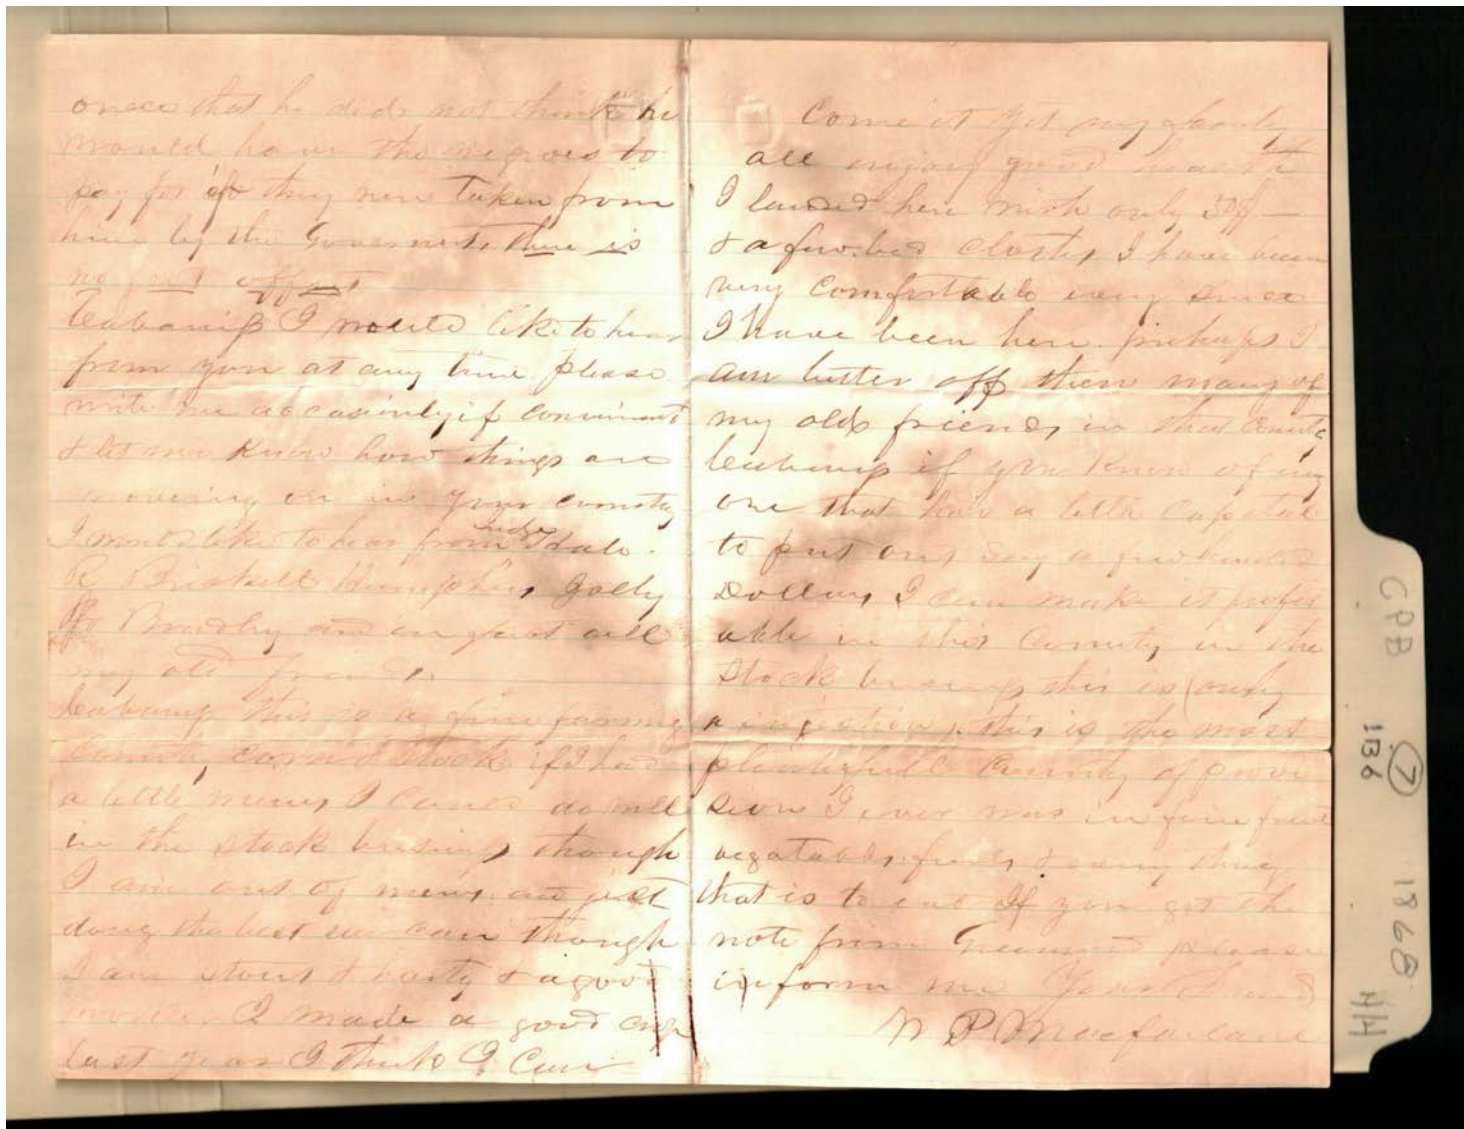 onece that he did not think he
would have the negroes to
pay for as they ware taken from
him by the Government, there is
no offset
I would like to hear
from you at any time please
write me accasinly if convinient
& let me know how things are
in your country
I would like to hear from Judge Hale.
R Humphers Jolly
Bradley and in fact all
my old friends.
this is a fine farming
country, corn & stock if I had
a little money I could do well
in the stock buisings though
I am out of means and just
doing the best we can though
I am stout & harty & a good
I made a good crop
last year I think I can
Come it yet my family
all enjoy good health
I landed here with only 30$
& a few bed clothes, I have been
very comfortable every since
I have been here. perhaps I
am better off then many of
my old friends in that country
if you know of any
one that have a little capital
to put out say a few hundred
Dollars, I can make it profit
able in this country in the
stock buisings this is (only
a . this is the most
plentifull country of provi
sion I ever was in fine fruit
vegatables & every thing
that is to eat If you got the
note from please
inform me Your friend
W P Macfarlane
CPB
7
1B6
1868
H/H